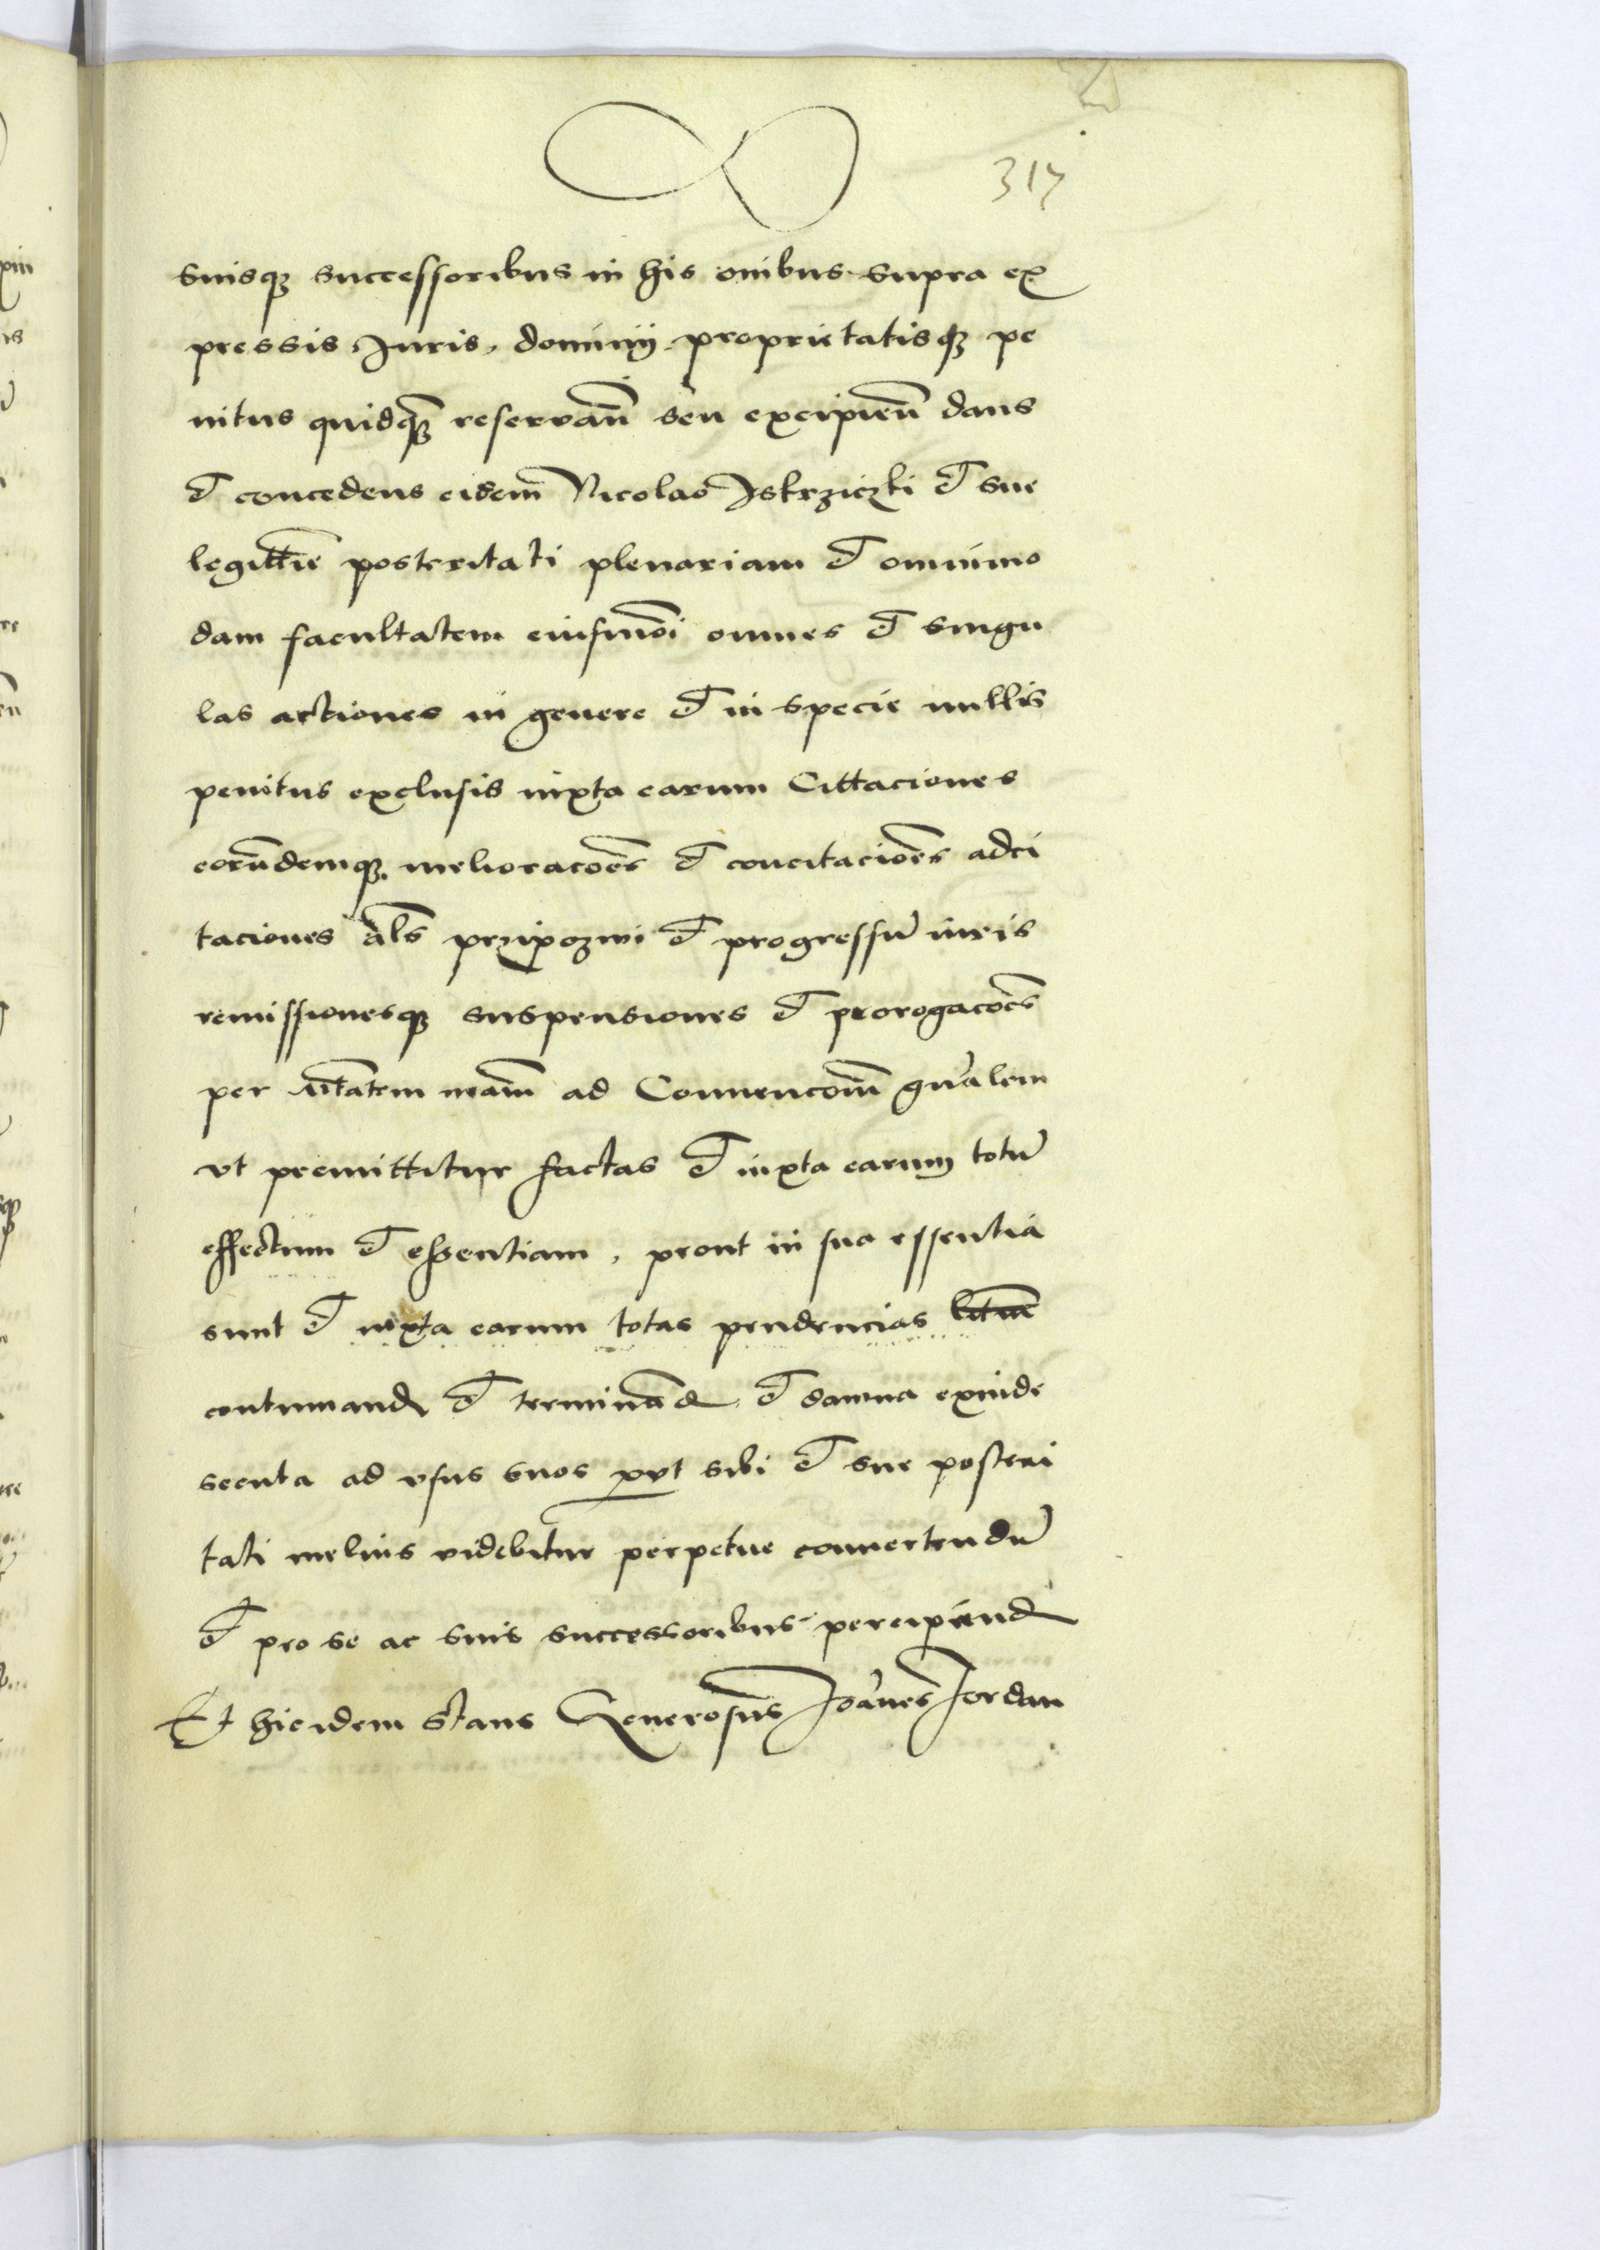 317
suisq̃ successoribus in his om̃ibus supra ex
pressis Juris, dominij proprietatisq̃ pe
nitus quidq̃ reservañ seu excipieñ dans
et concedens eidem Nicolao Jskrziczki et sue
legittĩe posteritati plenariam et omnimo
dam facultatem eiusmõi omnes et singu
las actiones in genere et in specie nullis
penitus exclusis iuxta earum Cittaciones
eorũdemq̃ melioracões et concitaciões adci
taciones als̃ przipozwi et progressũ iuris
remissionesq̃ suspensiones et prorogacões
per Mtãtem nrãm ad Convencõm gñralem
ut premittitur factas et iuxta earum totũ
effectum et essentiam, prout in sua essentia
sunt et iuxta earum totas pendencias
continuand et terminãd et damna exinde
secuta ad usus suos prut sibi et sue posteri
tati melius videbitur perpetue convertendũ
et pro se ac suis successoribus percipiend
Et hic idem Stans Generosus Joãnes Jordan